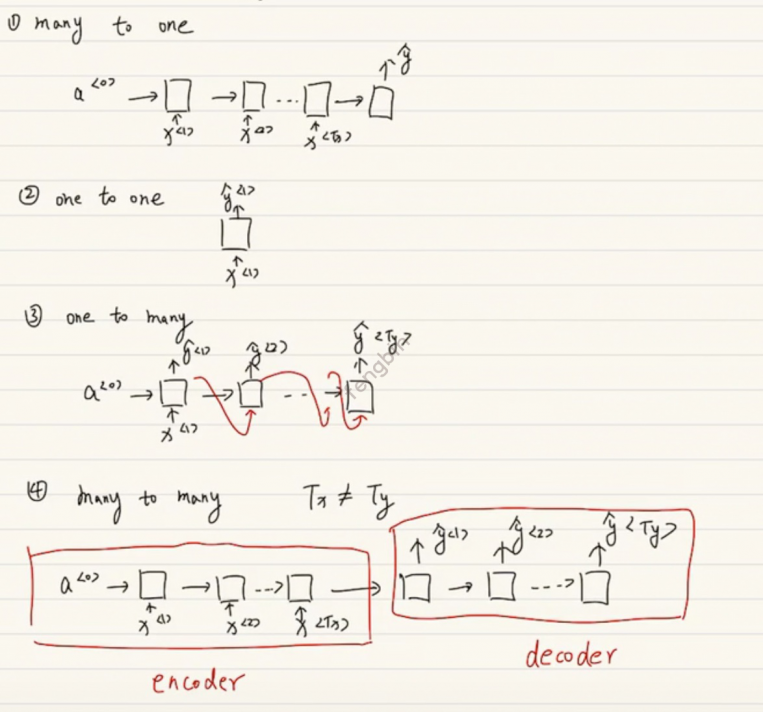 ① many to one
ŷ
a<0> → □ → □ ... □ → □
x<1> x<2> x<Tx>
② one to one
ŷ<1>
x<1>
③ one to many
ŷ<1> ŷ<2> ŷ<Ty>
a<0> → □ → □ -- → □
x<1>
④ many to many Tx ≠ Ty
ŷ<1> ŷ<2> ŷ<Ty>
a<0> → □ → □ ---> □ → □ → □ ---> □
x<1> x<2> x<Tx>
encoder
decoder